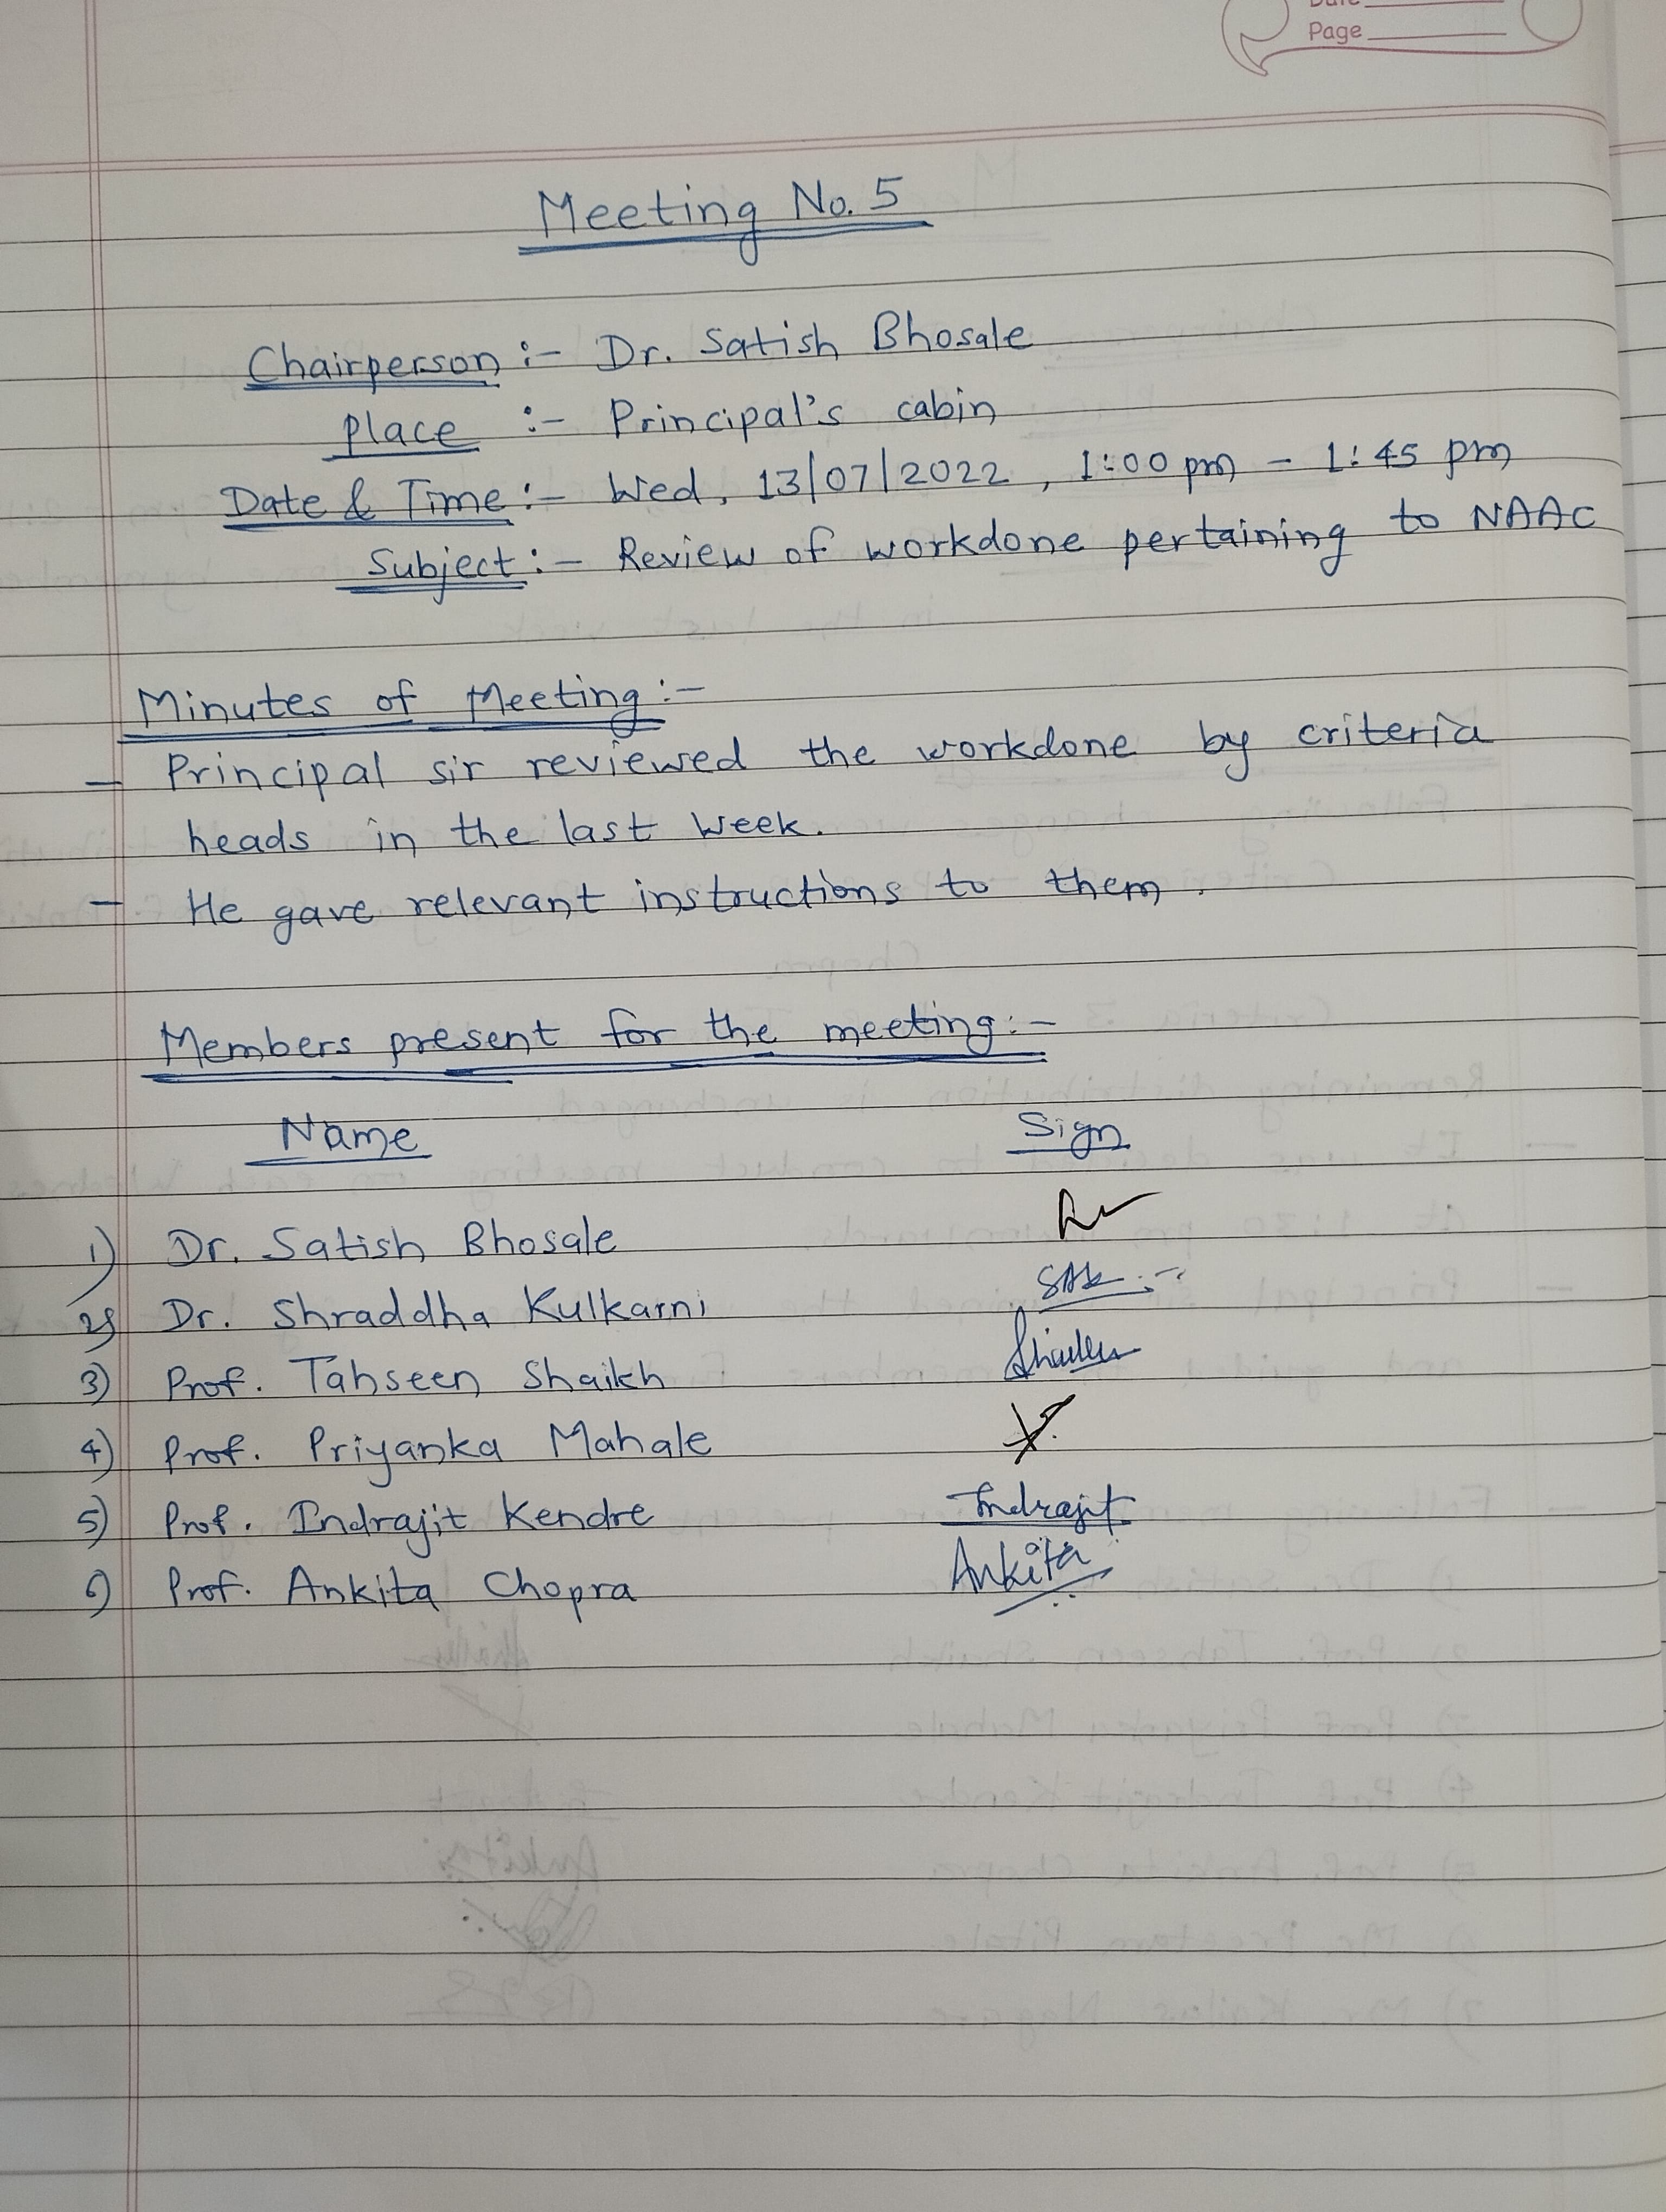 Date
Page
Meeting No. 5
Chairperson :- Dr. Satish Bhosale
Place :- Principal's cabin
Date & Time :- Wed, 13/07/2022, 1:00 pm - 1:45 pm
Subject :- Review of workdone pertaining to NAAC
Minutes of Meeting :-
- Principal sir reviewed the workdone by criteria
heads in the last week.
- He gave relevant instructions to them.
Members present for the meeting :-
Name Sign
1) Dr. Satish Bhosale
2) Dr. Shraddha Kulkarni
3) Prof. Tahseen Shaikh
4) Prof. Priyanka Mahale
5) Prof. Indrajit Kendre Indrajit
6) Prof. Ankita Chopra Ankita